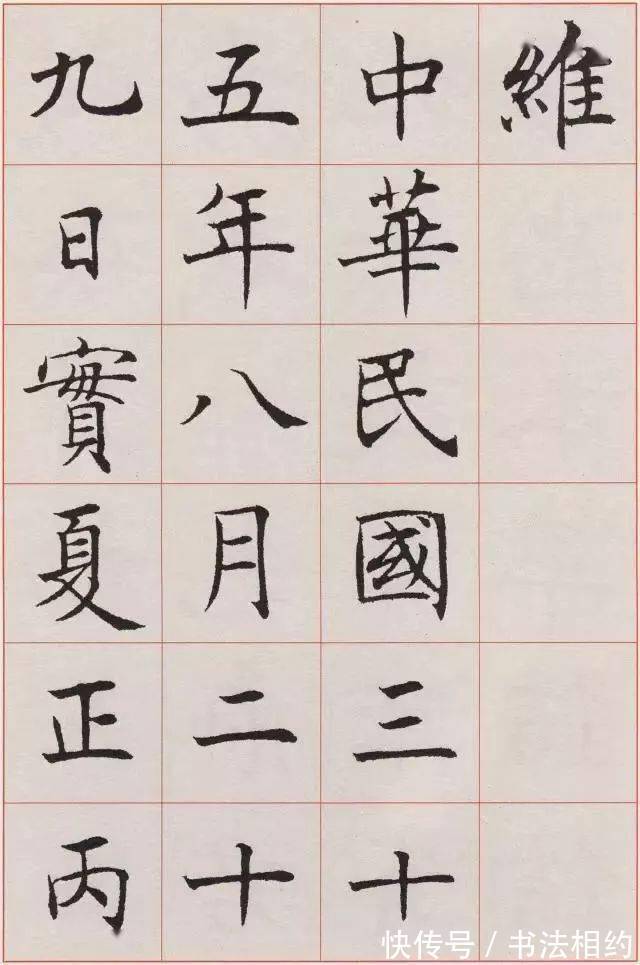 維
中華民國三十
五年八月二十
九日實夏正丙
快传号/书法相约